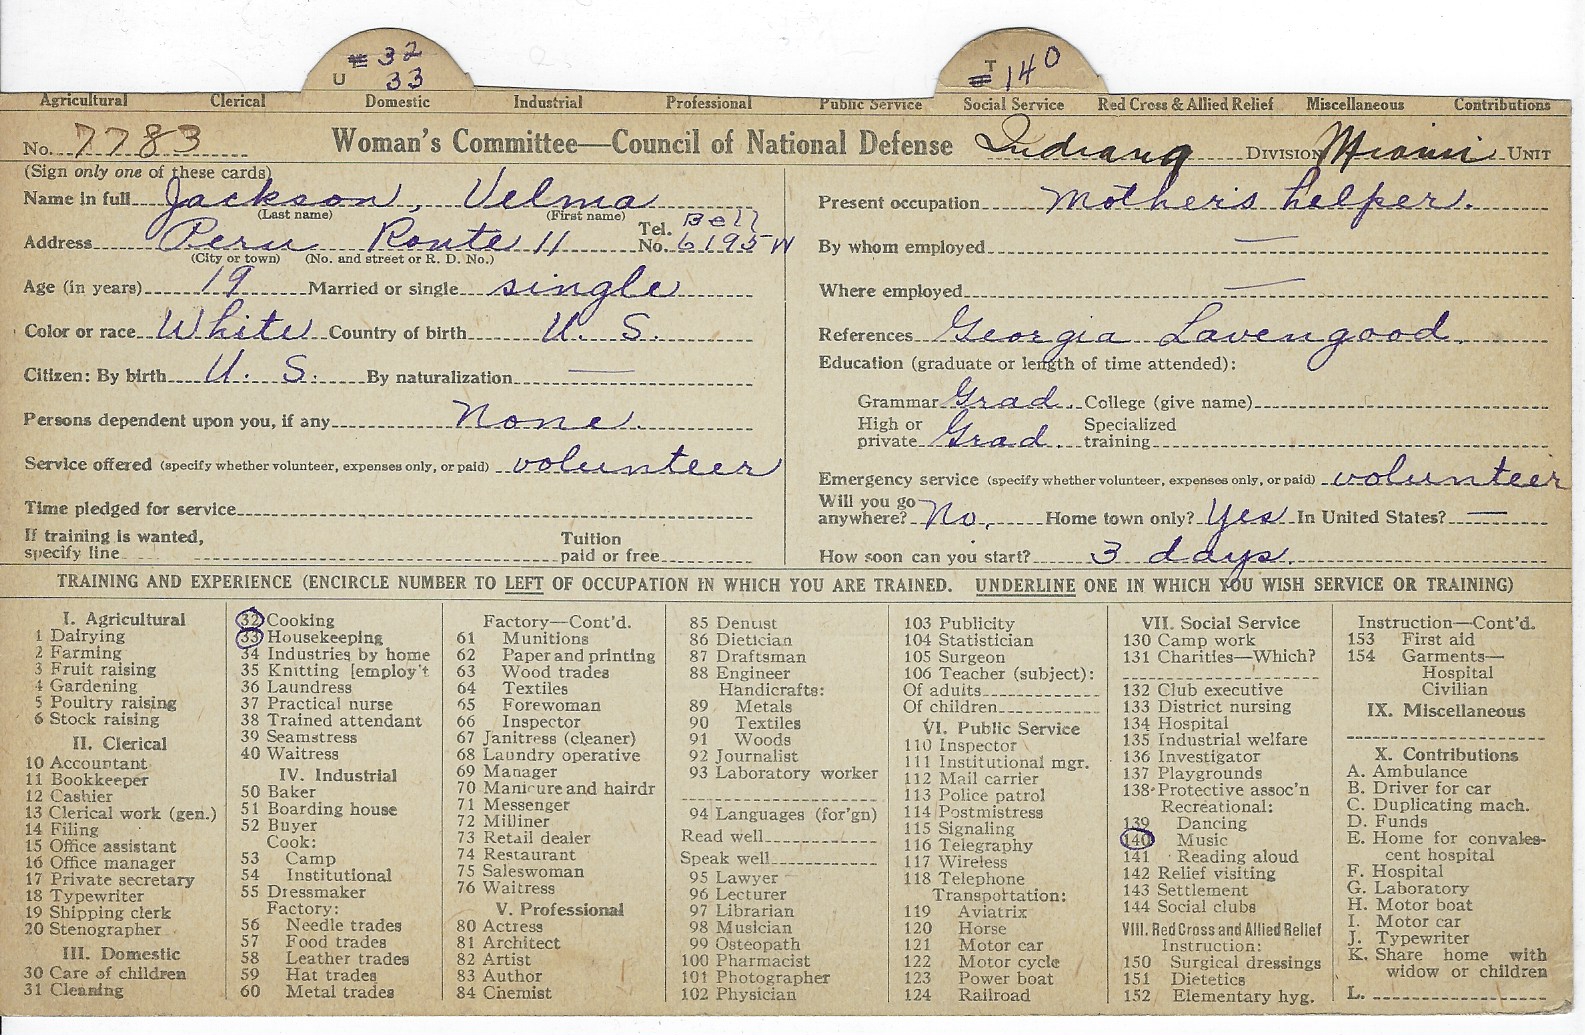 32
U 33
T
140
Agricultural Clerical Domestic Industrial Professional Public Service Social Service Red Cross & Allied Relief Miscellaneous Contributions
No. 7783 Woman's Committee—Council of National Defense Indiana DIVISION Miami UNIT
(Sign only one of these cards)
Name in full Jackson, Velma
(Last name) (First name)
Address Peru Route 11 Tel. No. Bell 6195 W
(City or town) (No. and street or R. D. No.)
Age (in years) 19 Married or single single
Color or race White Country of birth U. S.
Citizen: By birth U. S. By naturalization —
Persons dependent upon you, if any None.
Service offered (specify whether volunteer, expenses only, or paid) volunteer
Time pledged for service
If training is wanted, specify line Tuition paid or free
Present occupation Mother's helper.
By whom employed —
Where employed —
References Georgia Lavengood.
Education (graduate or length of time attended):
Grammar Grad. College (give name)
High or private Grad. Specialized training
Emergency service (specify whether volunteer, expenses only, or paid) volunteer
Will you go anywhere? No. Home town only? Yes In United States? —
How soon can you start? 3 days.
TRAINING AND EXPERIENCE (ENCIRCLE NUMBER TO LEFT OF OCCUPATION IN WHICH YOU ARE TRAINED. UNDERLINE ONE IN WHICH YOU WISH SERVICE OR TRAINING)
I. Agricultural
1 Dairying
2 Farming
3 Fruit raising
4 Gardening
5 Poultry raising
6 Stock raising
II. Clerical
10 Accountant
11 Bookkeeper
12 Cashier
13 Clerical work (gen.)
14 Filing
15 Office assistant
16 Office manager
17 Private secretary
18 Typewriter
19 Shipping clerk
20 Stenographer
III. Domestic
30 Care of children
31 Cleaning
32 Cooking
33 Housekeeping
34 Industries by home
35 Knitting [employ't
36 Laundress
37 Practical nurse
38 Trained attendant
39 Seamstress
40 Waitress
IV. Industrial
50 Baker
51 Boarding house
52 Buyer
Cook:
53 Camp
54 Institutional
55 Dressmaker
Factory:
56 Needle trades
57 Food trades
58 Leather trades
59 Hat trades
60 Metal trades
Factory—Cont'd.
61 Munitions
62 Paper and printing
63 Wood trades
64 Textiles
65 Forewoman
66 Inspector
67 Janitress (cleaner)
68 Laundry operative
69 Manager
70 Manicure and hairdr
71 Messenger
72 Milliner
73 Retail dealer
74 Restaurant
75 Saleswoman
76 Waitress
V. Professional
80 Actress
81 Architect
82 Artist
83 Author
84 Chemist
85 Dentist
86 Dietician
87 Draftsman
88 Engineer
Handicrafts:
89 Metals
90 Textiles
91 Woods
92 Journalist
93 Laboratory worker
94 Languages (for'gn)
Read well
Speak well
95 Lawyer
96 Lecturer
97 Librarian
98 Musician
99 Osteopath
100 Pharmacist
101 Photographer
102 Physician
103 Publicity
104 Statistician
105 Surgeon
106 Teacher (subject):
Of adults
Of children
VI. Public Service
110 Inspector
111 Institutional mgr.
112 Mail carrier
113 Police patrol
114 Postmistress
115 Signaling
116 Telegraphy
117 Wireless
118 Telephone
Transportation:
119 Aviatrix
120 Horse
121 Motor car
122 Motor cycle
123 Power boat
124 Railroad
VII. Social Service
130 Camp work
131 Charities—Which?
132 Club executive
133 District nursing
134 Hospital
135 Industrial welfare
136 Investigator
137 Playgrounds
138 Protective assoc'n
Recreational:
139 Dancing
140 Music
141 Reading aloud
142 Relief visiting
143 Settlement
144 Social clubs
VIII. Red Cross and Allied Relief
Instruction:
150 Surgical dressings
151 Dietetics
152 Elementary hyg.
Instruction—Cont'd.
153 First aid
154 Garments—
Hospital
Civilian
IX. Miscellaneous
X. Contributions
A. Ambulance
B. Driver for car
C. Duplicating mach.
D. Funds
E. Home for convales-
cent hospital
F. Hospital
G. Laboratory
H. Motor boat
I. Motor car
J. Typewriter
K. Share home with
widow or children
L.